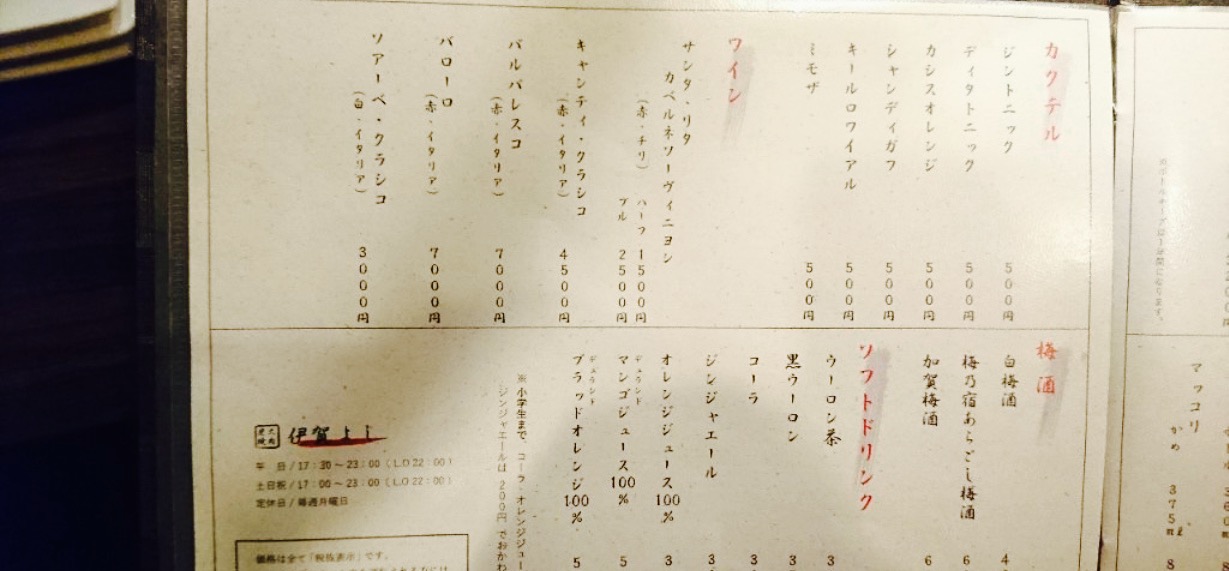 カクテル
ジントニック 500円
ディタトニック 500円
カシスオレンジ 500円
シャンディガフ 500円
キールロワイアル 500円
ミモザ 500円
ワイン
サンタ・リタ
カベルネソーヴィニヨン
(赤・チリ) ハーフ 1500円
フル 2500円
キャンティ・クラシコ
(赤・イタリア) 4500円
バルバレスコ
(赤・イタリア) 7000円
バローロ
(赤・イタリア) 7000円
ソアーベ・クラシコ
(白・イタリア) 3000円
梅酒
白梅酒 4
梅乃宿あらごし梅酒 6
加賀梅酒 6
ソフトドリンク
ウーロン茶 3
黒ウーロン 3
コーラ 3
ジンジャエール 3
オレンジジュース100% 3
デュランド
マンゴジュース100% 5
デュランド
ブラッドオレンジ100% 5
※小学生まで、コーラ オレンジジュー
ジンジャエールは200円でおかわ
伊賀よし
平 日/17:30~23:00(L.O 22:00)
土日祝/17:00~23:00(L.O 22:00)
定休日/毎週月曜日
価格は全て「税抜表示」です。
マッコリ
かめ 375ml 8